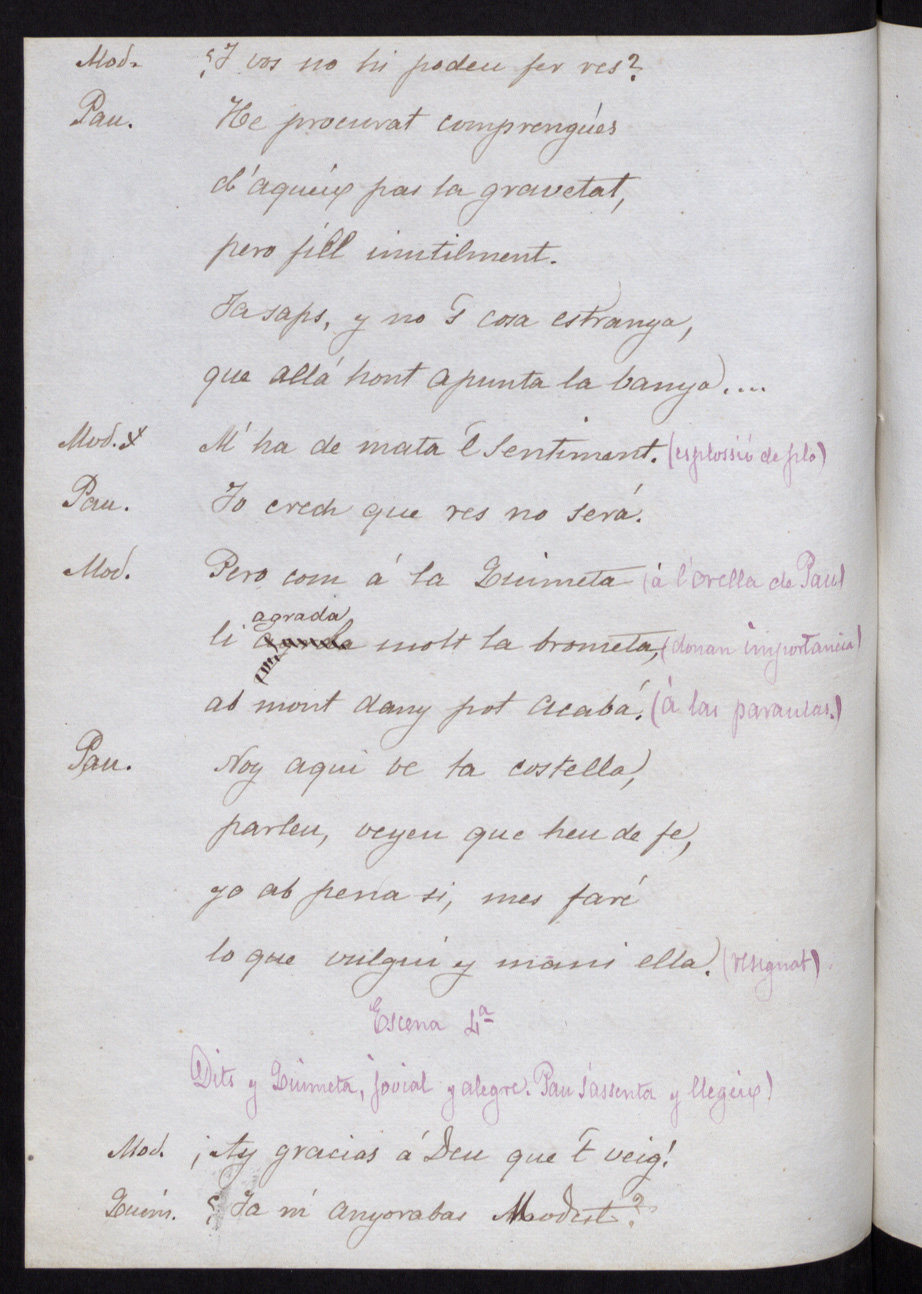 Mod. ¿Y vos no hi podeu fer res?
Pau. He procurat comprengués
d'aqueix pas la gravetat,
pero fill inutilment.
Ja saps, y no 's cosa estranya,
que allá hont apunta la banya....
Mod. M' ha de mata 'l sentiment. (esplossió de plo)
Pau. Jo crech que res no será.
Mod. Pero com á la Quimeta (á l'orella de Pau)
agrada
li molt la brometa, (donan importancia)
ab mont dany pot acabá. (á las paraulas.)
Pau. Noy aqui ve la costella,
parleu, veyeu que heu de fe,
yo ab pena si, mes faré
lo que vulgui y mani ella. (resignat)
Escena 4ª
(Dits y Quimeta, jovial y alegre. Pau s'assenta y llegeix)
Mod. ¡Ay gracias á Deu que 't veig!
Quim. ¿Ja m' anyorabas Modest?